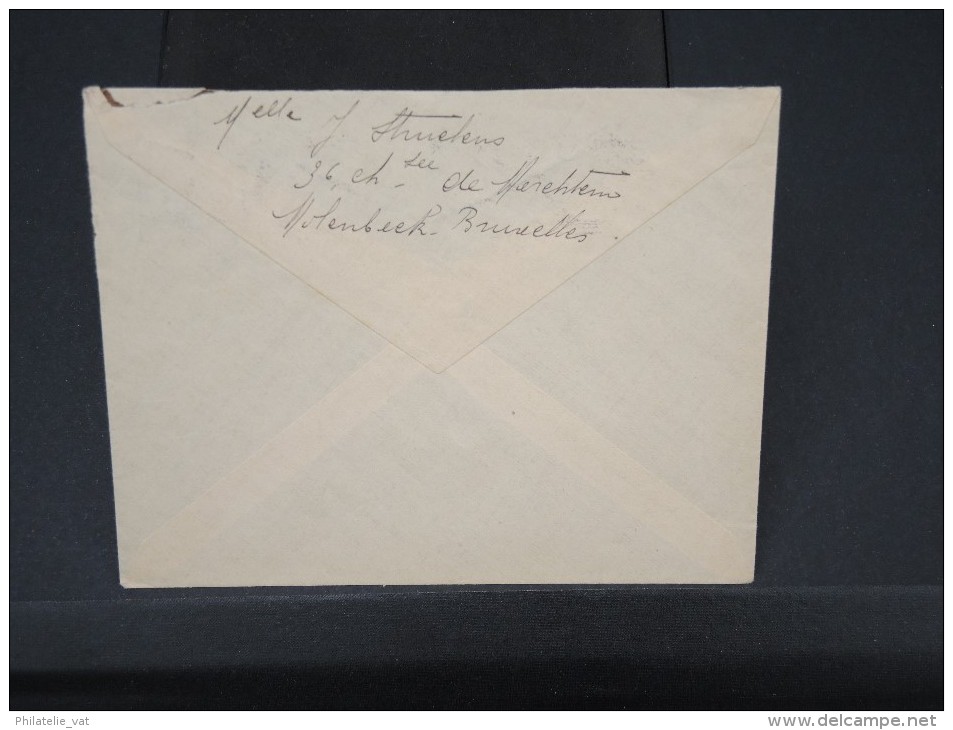 Melle J. Struelens
36, ch-sée de Merchtem
Molenbeek-Bruxelles.
Philatelie_vat
www.delcampe.net